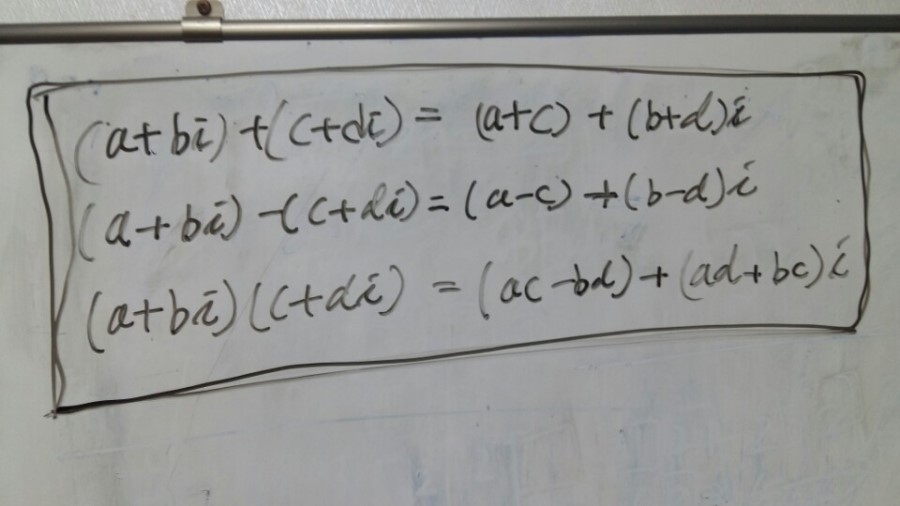 (a+bi)+(c+di)= (a+c)+(b+d)i
(a+bi)-(c+di)=(a-c)+(b-d)i
(a+bi)(c+di) =(ac-bd)+(ad+bc)i